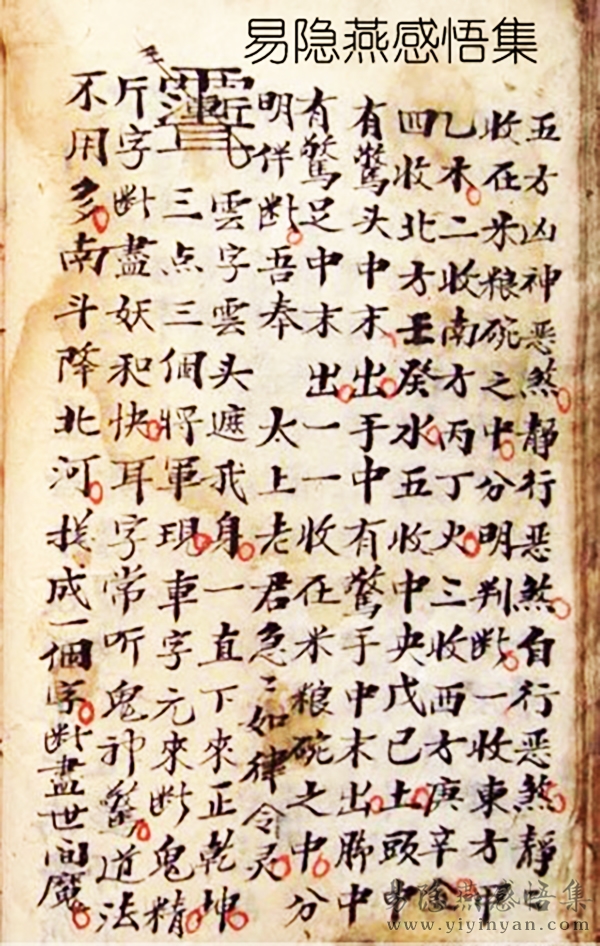 易隐燕感悟集
五方凶神恶煞静行恶煞自行恶煞静
收在米粮碗之中分明判断一收東方甲
乙木二收南方丙丁火三收西方庚辛金
四收北方壬癸水五收中央戊己土頭中
有驚头中末出手中有驚手中末出脚中
有驚足中末出一一收在米粮碗之中分
明伴断吾奉太上老君急〻如律令灵
雲字雲头遮我身一直下來正乾坤
三点三個将軍現車字元來断鬼精
斤字断盡妖和快耳字常听鬼神驚道法
不用多南斗降北河找成一個字断盡世间魔
易隐燕感悟集
www.yiyinyan.com